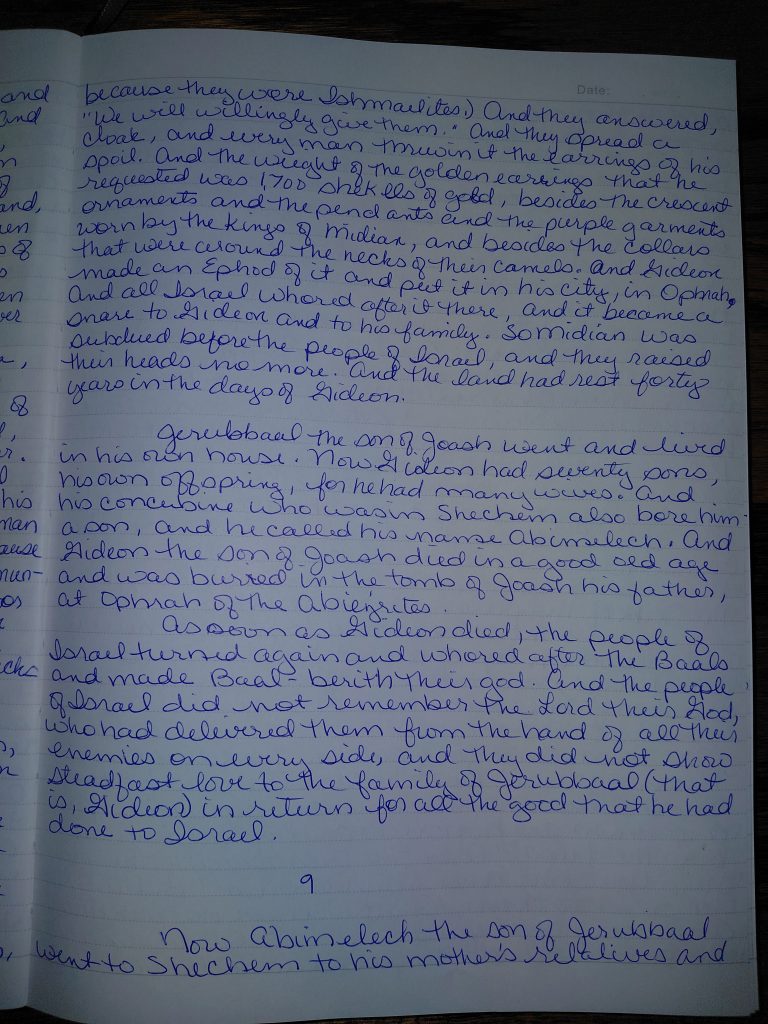 Date:
because they were Ishmaelites.) And they answered,
"We will willingly give them." And they spread a
cloak, and every man threw in it the earrings of his
spoil. And the weight of the golden earrings that he
requested was 1,700 shekells of gold, besides the crescent
ornaments and the pendants and the purple garments
worn by the kings of Midian, and besides the collars
that were around the necks of their camels. And Gideon
made an Ephod of it and put it in his city, in Ophrah,
And all Israel whored after it there, and it became a
snare to Gideon and to his family. So Midian was
subdued before the people of Israel, and they raised
their heads no more. And the land had rest forty
years in the days of Gideon.
Jerubbaal the son of Joash went and lived
in his own house. Now Gideon had seventy sons,
his own offspring, for he had many wives. And
his concubine who was in Shechem also bore him
a son, and he called his name Abimelech. And
Gideon the son of Joash died in a good old age
and was burred in the tomb of Joash his father,
at Ophrah of the Abiezrites.
As soon as Gideon died, the people of
Israel turned again and whored after the Baals
and made Baal-berith their god. And the people
of Israel did not remember the Lord their God,
who had delivered them from the hand of all their
enemies on every side, and they did not show
steadfast love to the family of Jerubbaal (that
is, Gideon) in return for all the good that he had
done to Israel.
9
Now Abimelech the son of Jerubbaal
went to Shechem to his mother's relatives and